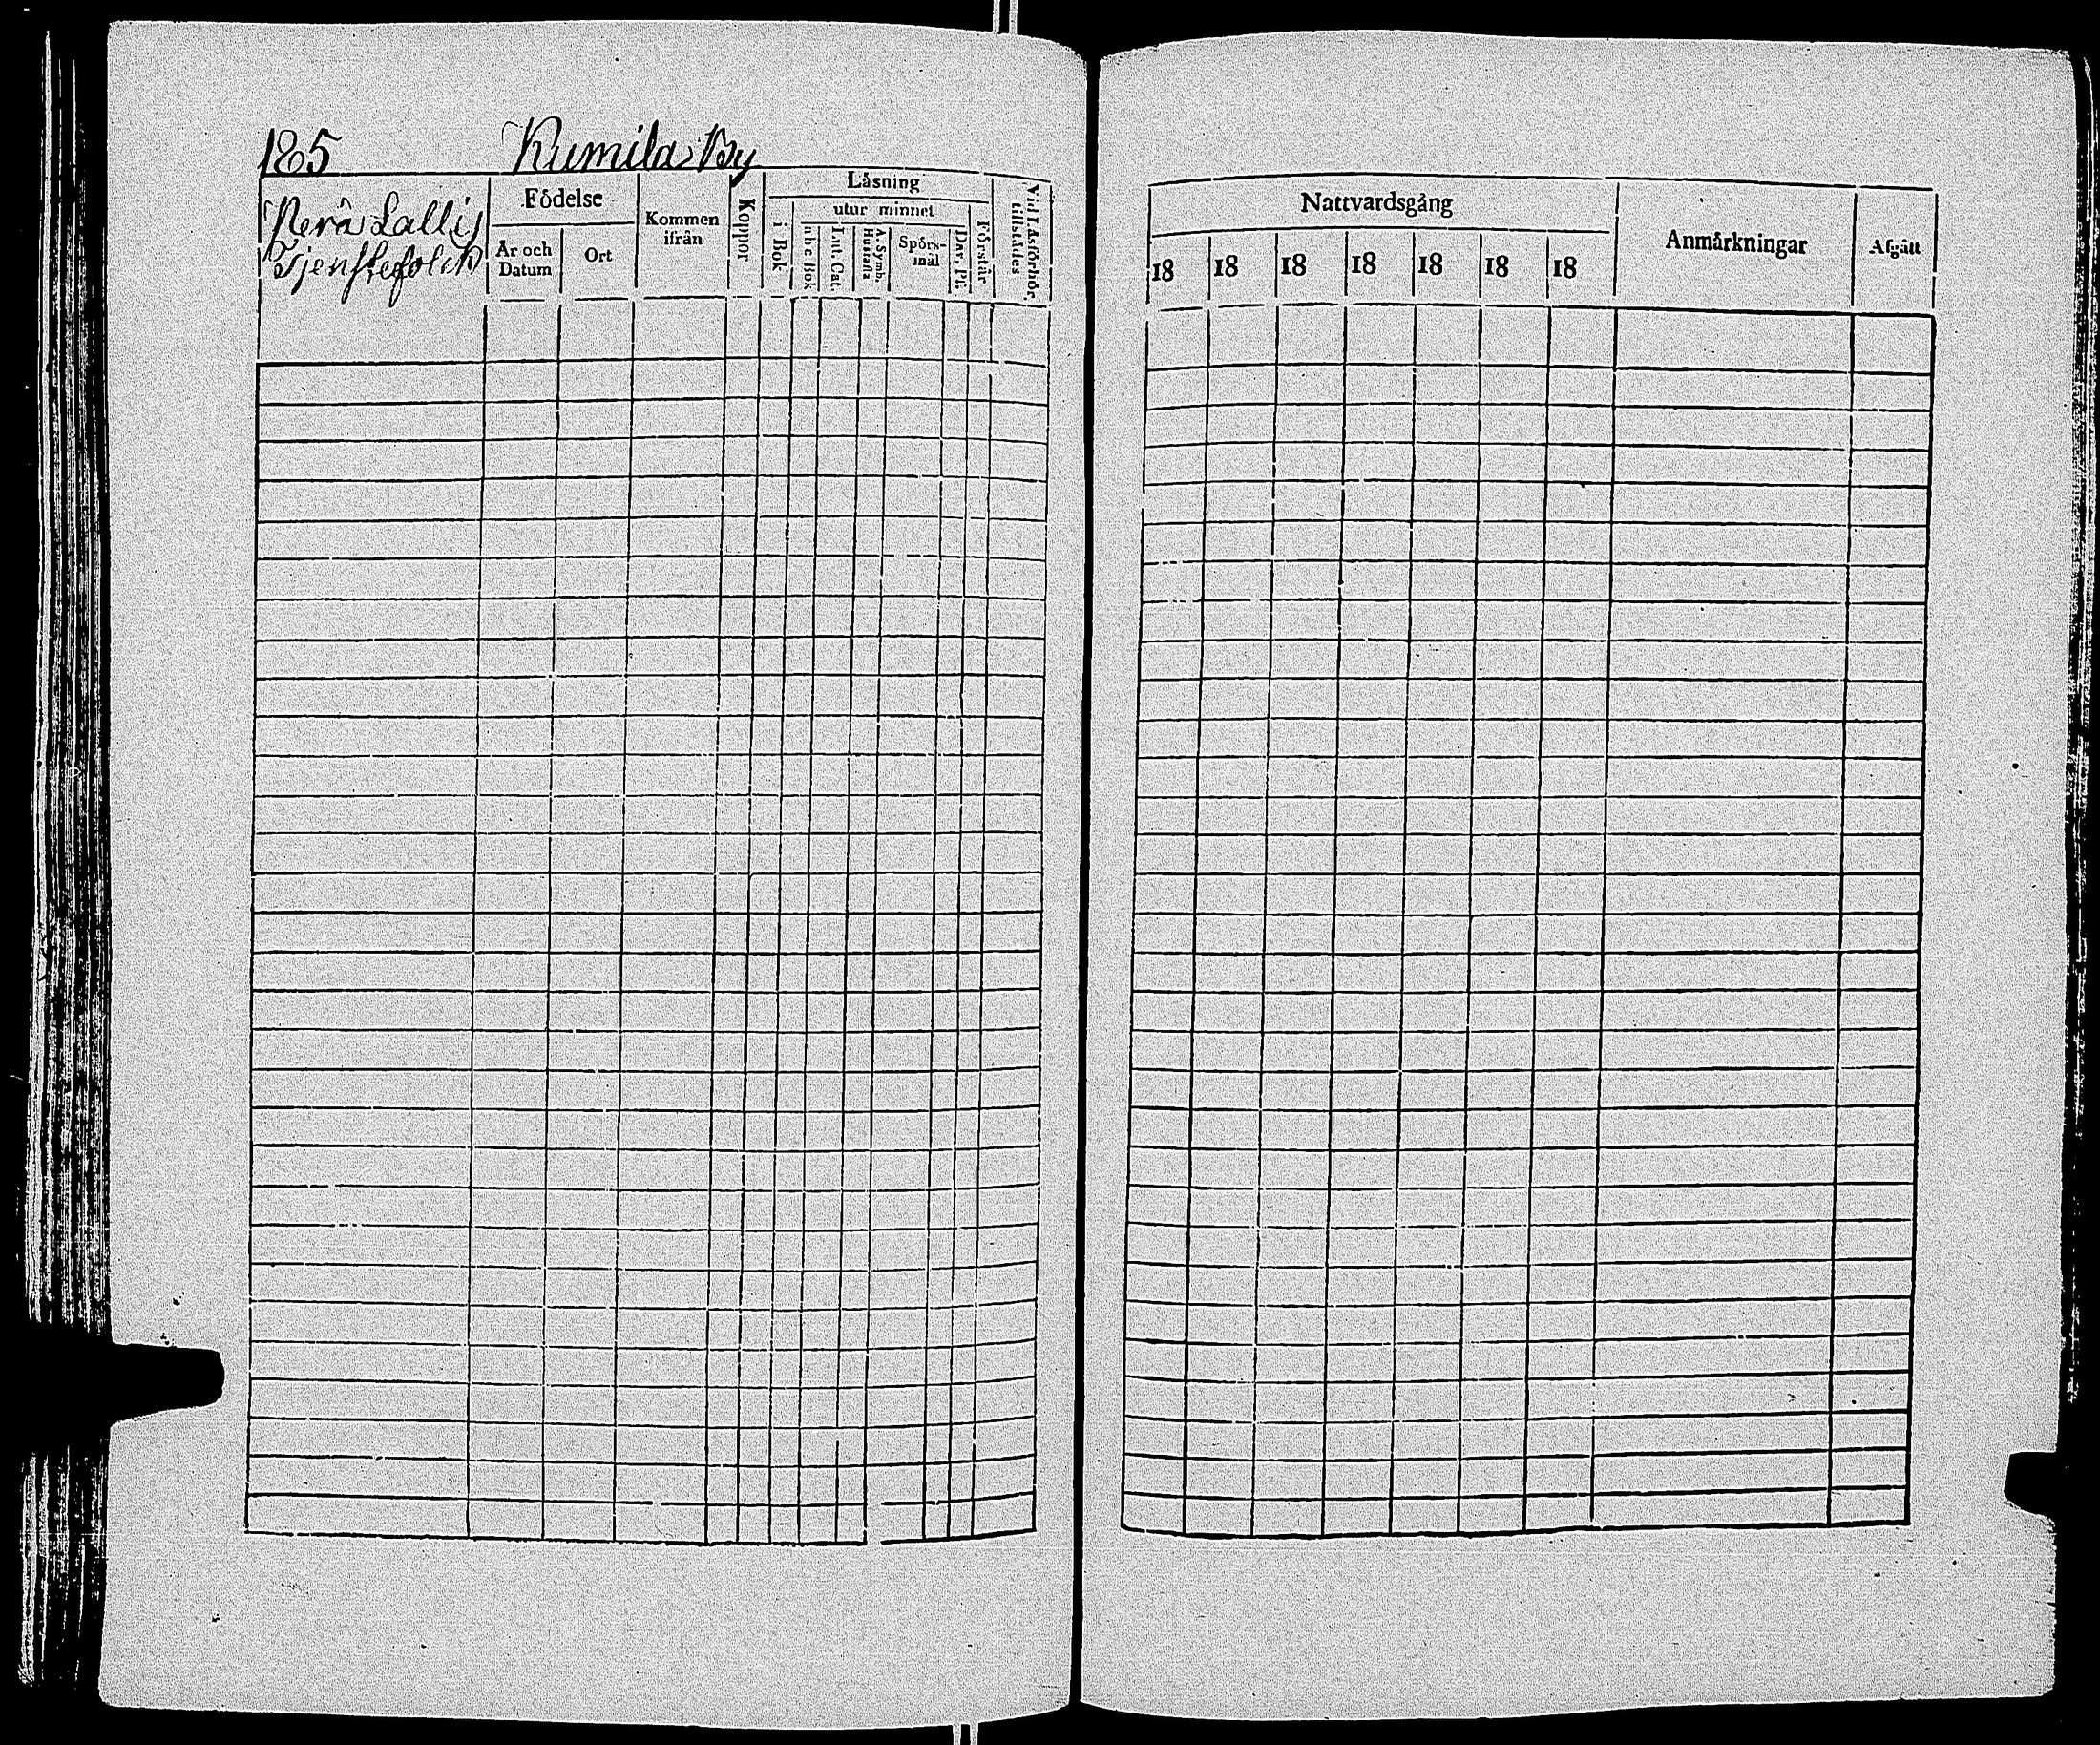 185 Kumila By
Nerä Lallij
Tjenstefolck
Födelse
År och Datum
Ort
Kommen ifrån
Koppor
Läsning
i Bok
utur minnet
a b c Bok
Luth. Cat.
A. Symb. Hustafla
Spörsmål
Dav. Ps.
Förstår
Vid Läsförhör tillstädes
Nattvardsgång
18 18 18 18 18 18 18
Anmärkningar
Afgått